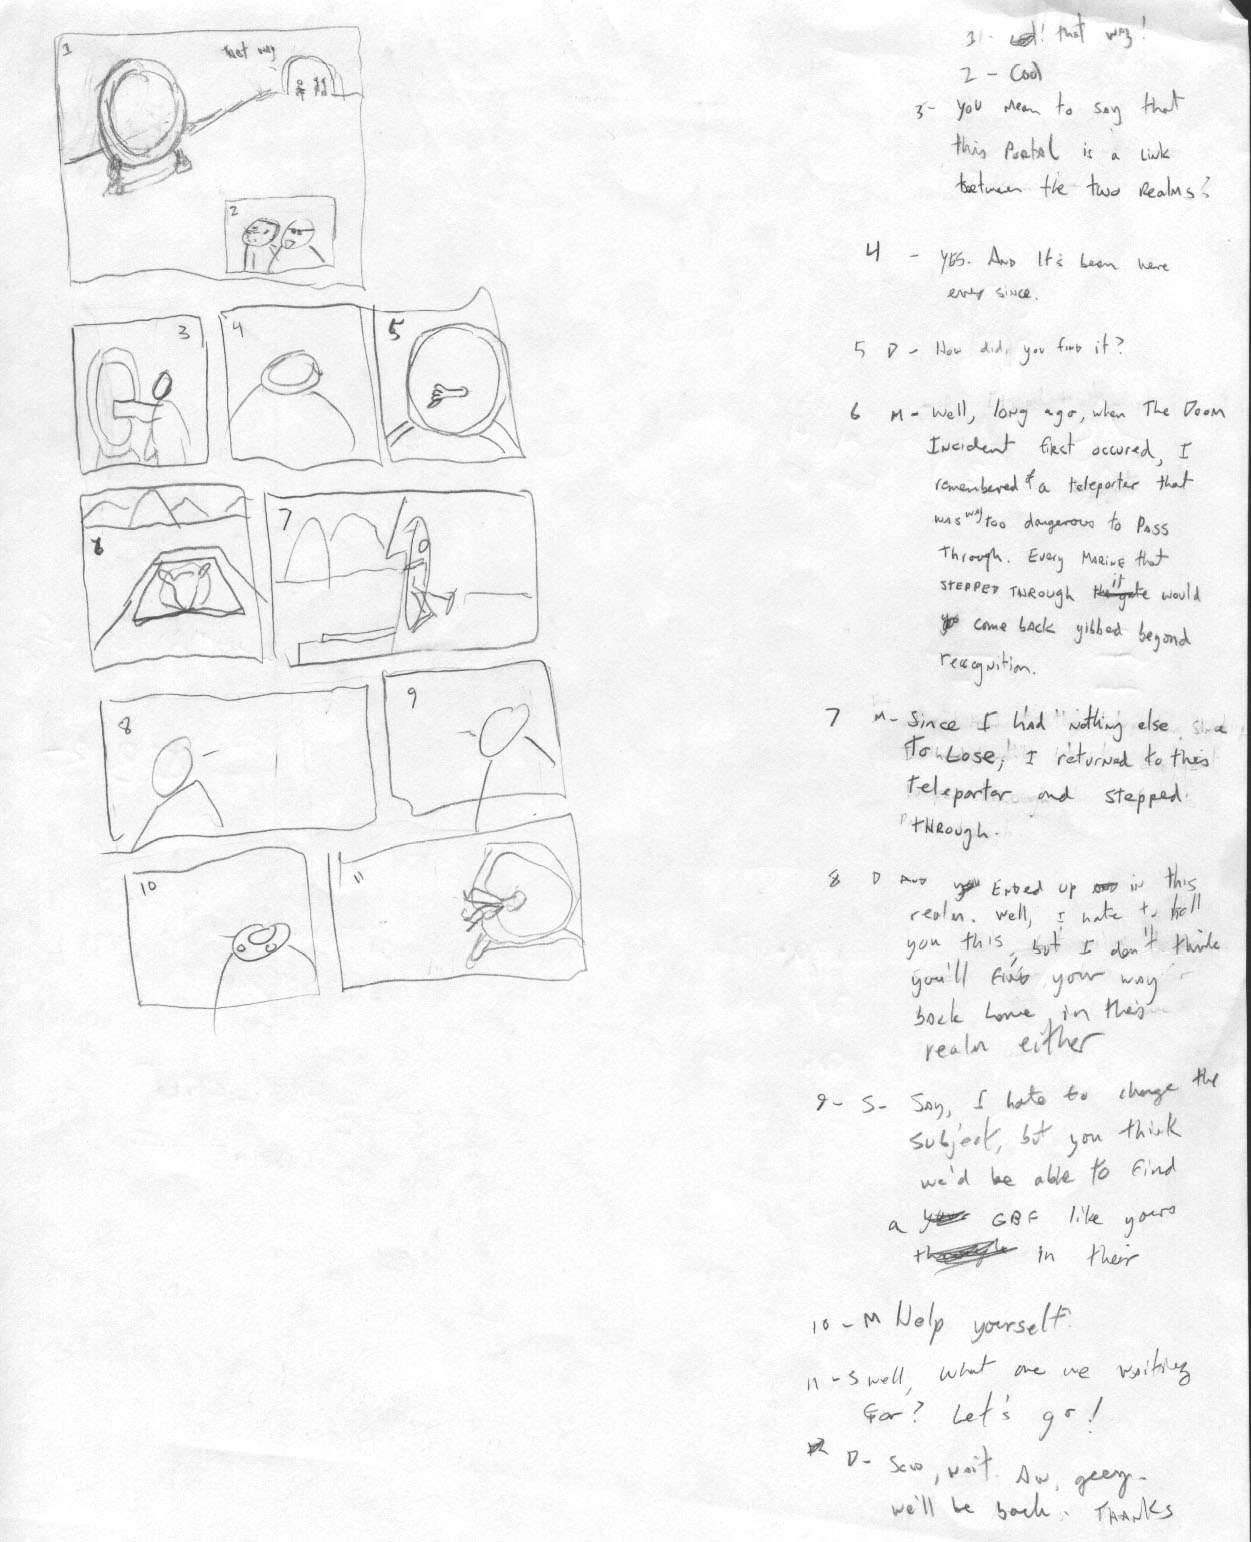 1
that way
2
3
4
5
6
7
8
9
10
11
1 - that way!
2 - Cool
3- you mean to say that
this Portal is a Link
between the two Realms?
4 - YES. And It's been here
ever since.
5 D - How did you find it?
6 M - Well, long ago, when The Doom
Incident first occured, I
remembered a teleporter that
was way too dangerous to PASS
through. Every MARINE that
STEPPED THROUGH it would
come back gibbed beyond
recognition.
7 M- Since I had nothing else
To Lose, I returned to this
teleporter and stepped
THROUGH.
8 D AND Ended up in this
realm. Well, I hate to tell
you this, but I don't think
you'll find your way
back home in this
realm either
9- S- Say, I hate to change the
subject, but you think
we'd be able to find
a GBF like yours
in their
10 - M Help yourself.
11 - S well, what are we waiting
for? Let's go!
D- wait. Aw, geez.
we'll be back. THANKS